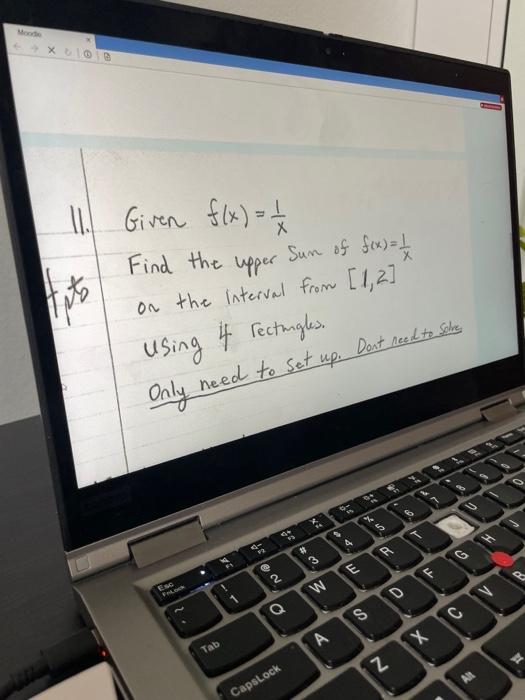 Moodle
11. Given f(x) = 1/x
Find the upper Sum of f(x) = 1/x
pts on the interval from [1,2]
using 4 rectangles.
Only need to set up. Dont need to Solve.
Esc
FnLock
F1
F2
! 1
@ 2
# 3
4
% 5
6
7
8
Tab
Q
W
E
R
T
U
I
CapsLock
A
S
D
F
G
H
J
Z
X
C
V
B
Alt